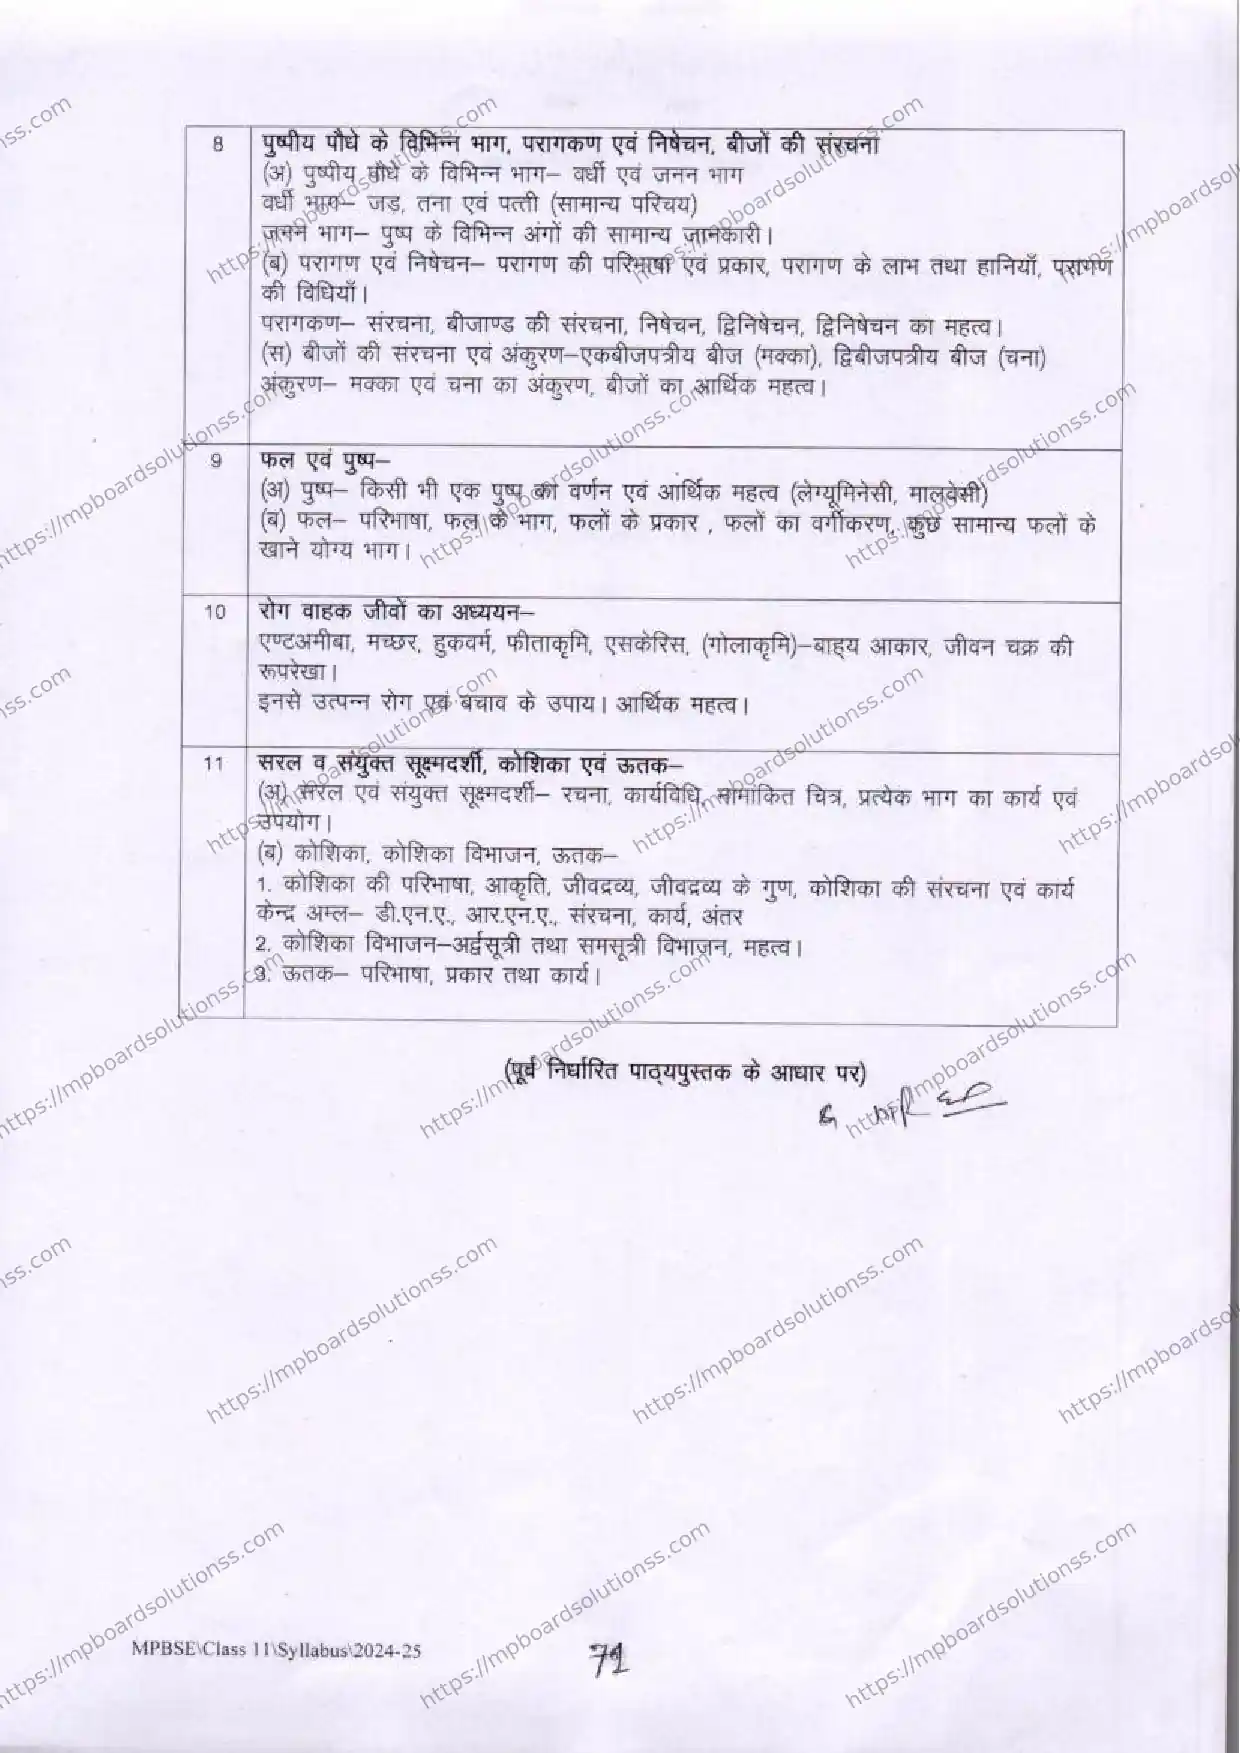 8 पुष्पीय पौधे के विभिन्न भाग, परागकण एवं निषेचन, बीजों की संरचना
(अ) पुष्पीय पौधे के विभिन्न भाग– वर्धी एवं जनन भाग
वर्धी भाग– जड़, तना एवं पत्ती (सामान्य परिचय)
जनन भाग– पुष्प के विभिन्न अंगों की सामान्य जानकारी।
(ब) परागण एवं निषेचन– परागण की परिभाषा एवं प्रकार, परागण के लाभ तथा हानियाँ, परागण
की विधियाँ।
परागकण– संरचना, बीजाण्ड की संरचना, निषेचन, द्विनिषेचन, द्विनिषेचन का महत्व।
(स) बीजों की संरचना एवं अंकुरण–एकबीजपत्रीय बीज (मक्का), द्विबीजपत्रीय बीज (चना)
अंकुरण– मक्का एवं चना का अंकुरण, बीजों का आर्थिक महत्व।
9 फल एवं पुष्प–
(अ) पुष्प– किसी भी एक पुष्प का वर्णन एवं आर्थिक महत्व (लेग्यूमिनेसी, मालवेसी)
(ब) फल– परिभाषा, फल के भाग, फलों के प्रकार , फलों का वर्गीकरण, कुछ सामान्य फलों के
खाने योग्य भाग।
10 रोग वाहक जीवों का अध्ययन–
एण्टअमीबा, मच्छर, हुकवर्म, फीताकृमि, एसकेरिस, (गोलाकृमि)–बाह्य आकार, जीवन चक्र की
रूपरेखा।
इनसे उत्पन्न रोग एवं बचाव के उपाय। आर्थिक महत्व।
11 सरल व संयुक्त सूक्ष्मदर्शी, कोशिका एवं ऊतक–
(अ) सरल एवं संयुक्त सूक्ष्मदर्शी– रचना, कार्यविधि, नामांकित चित्र, प्रत्येक भाग का कार्य एवं
उपयोग।
(ब) कोशिका, कोशिका विभाजन, ऊतक–
1. कोशिका की परिभाषा, आकृति, जीवद्रव्य, जीवद्रव्य के गुण, कोशिका की संरचना एवं कार्य
केन्द्र अम्ल– डी.एन.ए., आर.एन.ए., संरचना, कार्य, अंतर
2. कोशिका विभाजन–अर्द्वसूत्री तथा समसूत्री विभाजन, महत्व।
3. ऊतक– परिभाषा, प्रकार तथा कार्य।
(पूर्व निर्धारित पाठ्यपुस्तक के आधार पर)
MPBSE\Class 11\Syllabus\2024-25
71
https://mpboardsolutionss.com